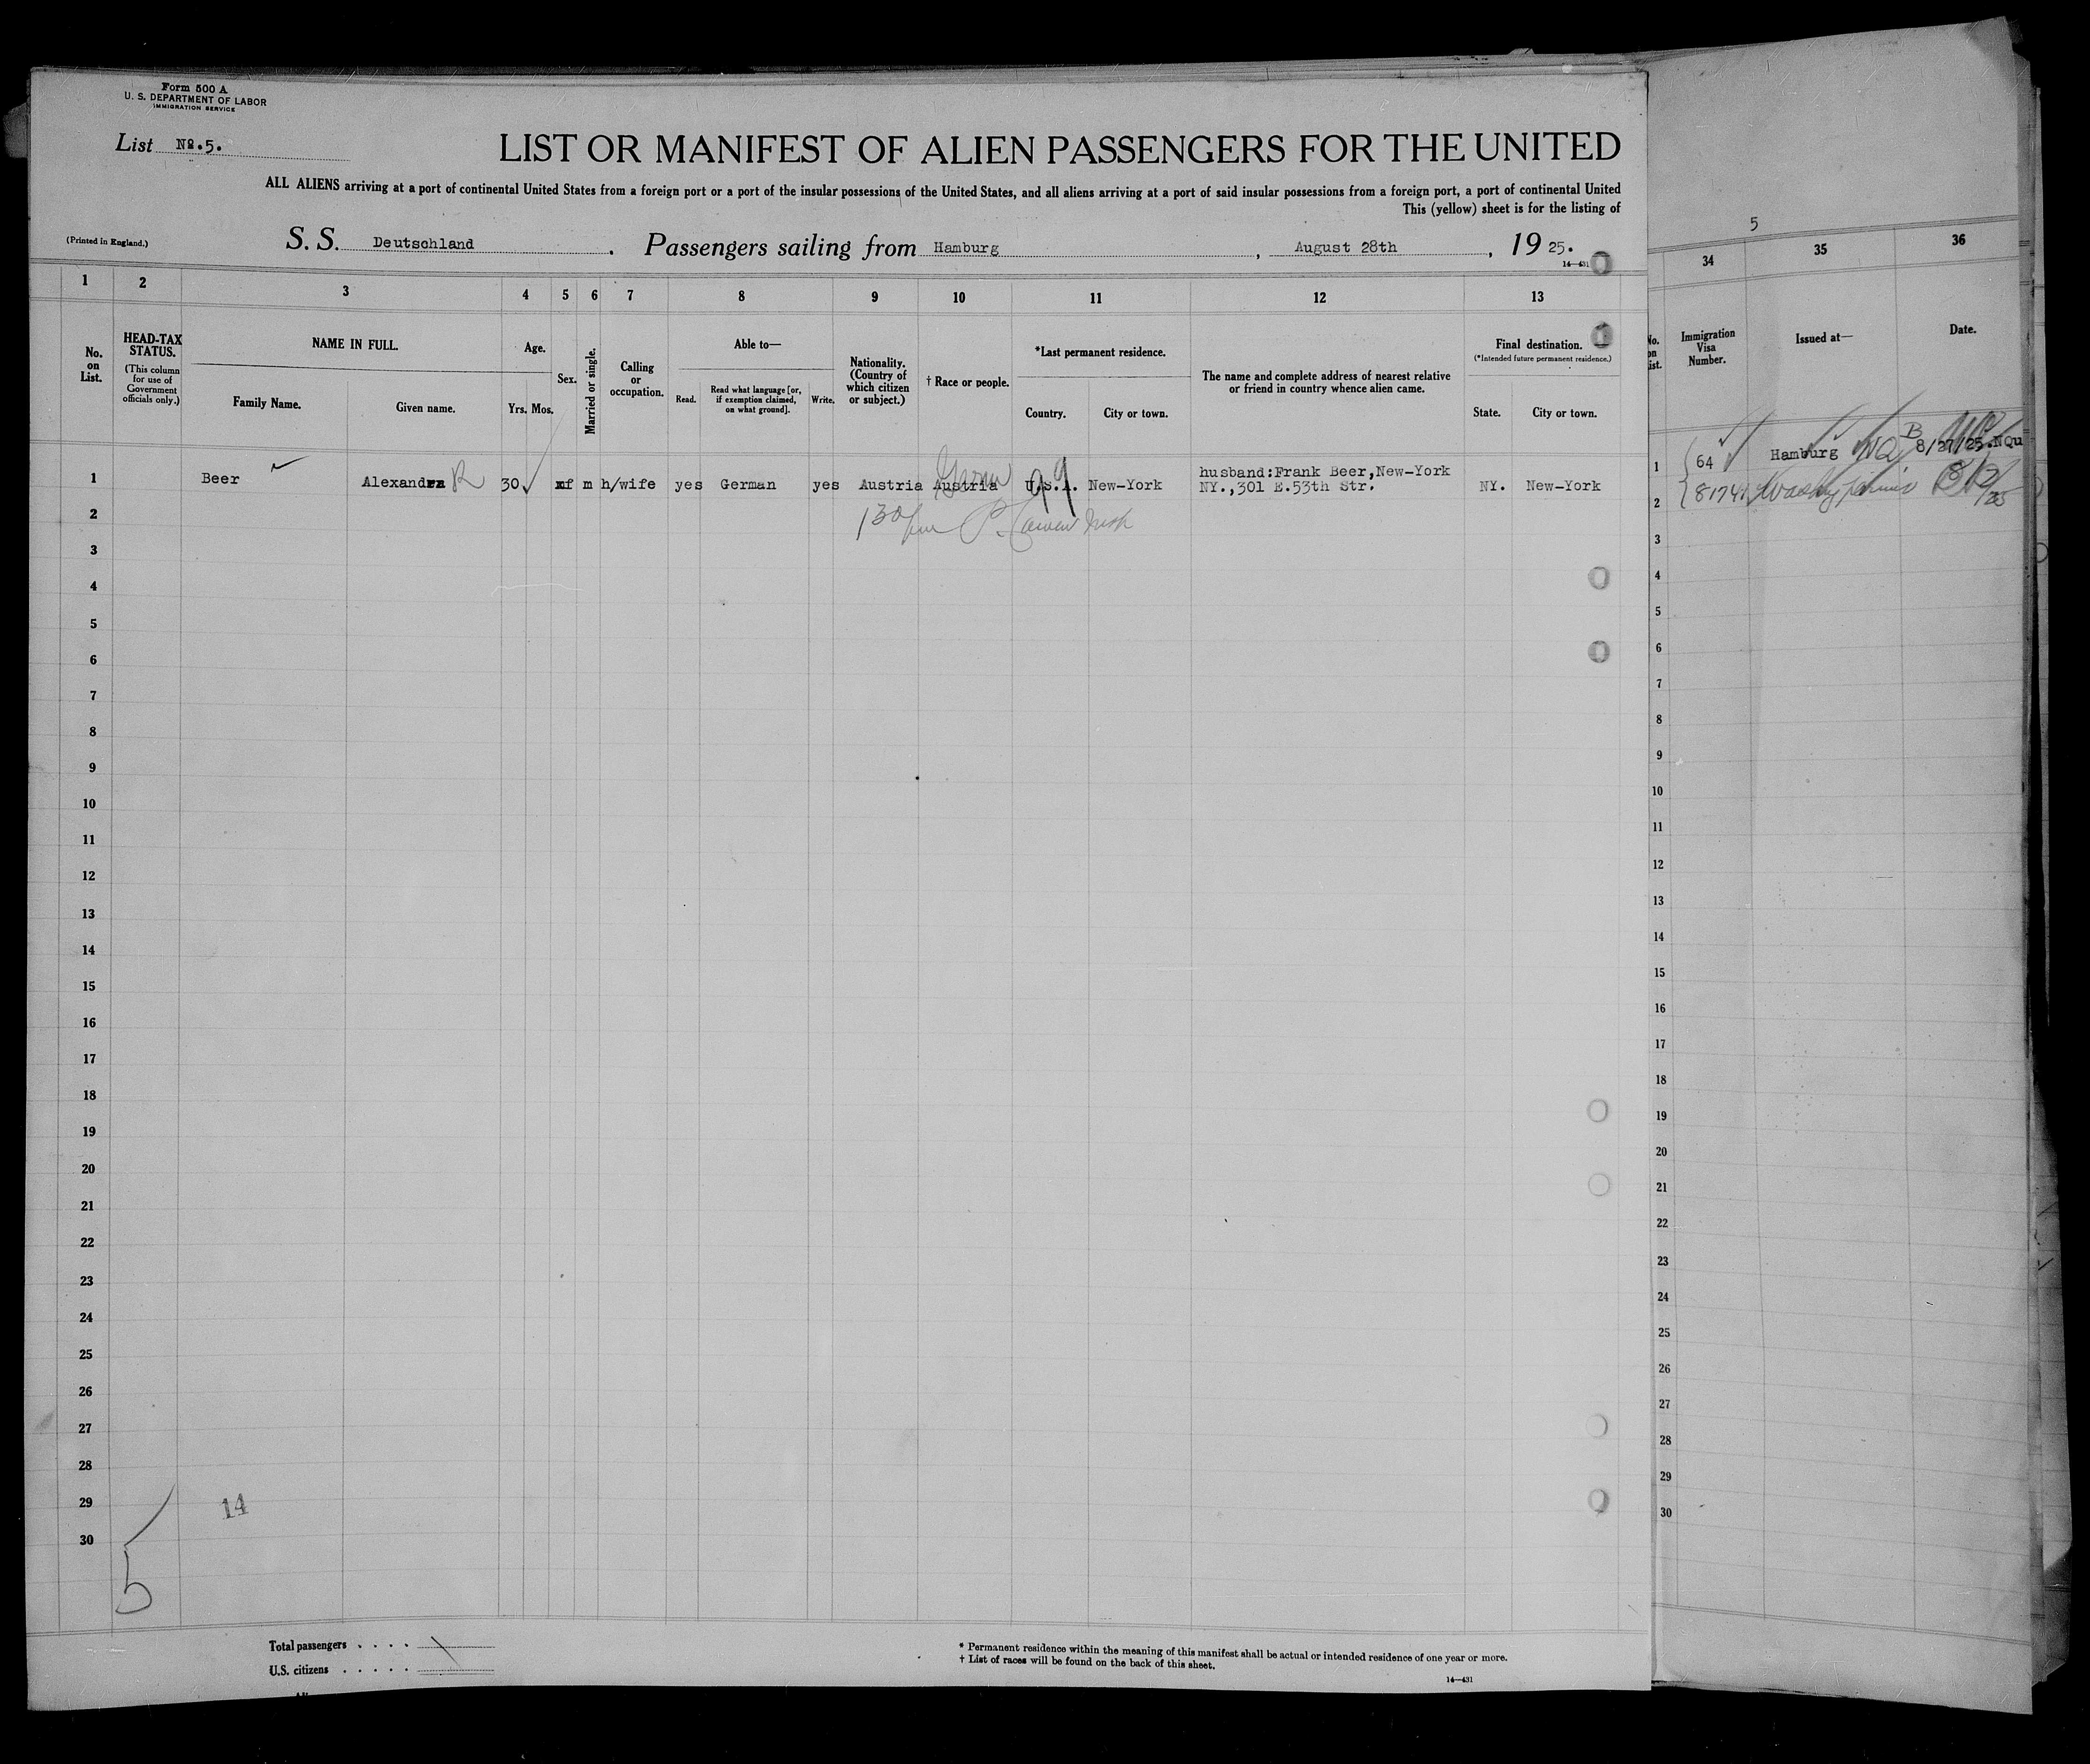 Form 500 A
U. S. DEPARTMENT OF LABOR
IMMIGRATION SERVICE
List No.5.
LIST OR MANIFEST OF ALIEN PASSENGERS FOR THE UNITED
ALL ALIENS arriving at a port of continental United States from a foreign port or a port of the insular possessions of the United States, and all aliens arriving at a port of said insular possessions from a foreign port, a port of continental United
This (yellow) sheet is for the listing of
(Printed in England.)
S. S. Deutschland. Passengers sailing from Hamburg, August 28th, 19 25.
14—431
5
1 2 3 4 5 6 7 8 9 10 11 12 13
34 35 36
No. on List.
HEAD-TAX STATUS.
(This column for use of Government officials only.)
NAME IN FULL.
Family Name. Given name.
Age.
Yrs. Mos.
Sex.
Married or single.
Calling or occupation.
Able to—
Read. Read what language [or, if exemption claimed, on what ground]. Write.
Nationality. (Country of which citizen or subject.)
† Race or people.
*Last permanent residence.
Country. City or town.
The name and complete address of nearest relative or friend in country whence alien came.
Final destination.
(*Intended future permanent residence.)
State. City or town.
No. on List.
Immigration Visa Number.
Issued at—
Date.
1 Beer Alexandra R 30 f m h/wife yes German yes Austria Austria U.S.A. New-York husband:Frank Beer,New-York
NY.,301 E.53th Str. NY. New-York
German
99
1 64 Hamburg NQ B 8/27/25.NQu
2 81741
2 130pm P.
3
4
5
6
7
8
9
10
11
12
13
14
15
16
17
18
19
20
21
22
23
24
25
26
27
28
29
30
3
4
5
6
7
8
9
10
11
12
13
14
15
16
17
18
19
20
21
22
23
24
25
26
27
28
29
30
14
5
Total passengers . . . .
U.S. citizens . . . . .
* Permanent residence within the meaning of this manifest shall be actual or intended residence of one year or more.
† List of races will be found on the back of this sheet.
14—431